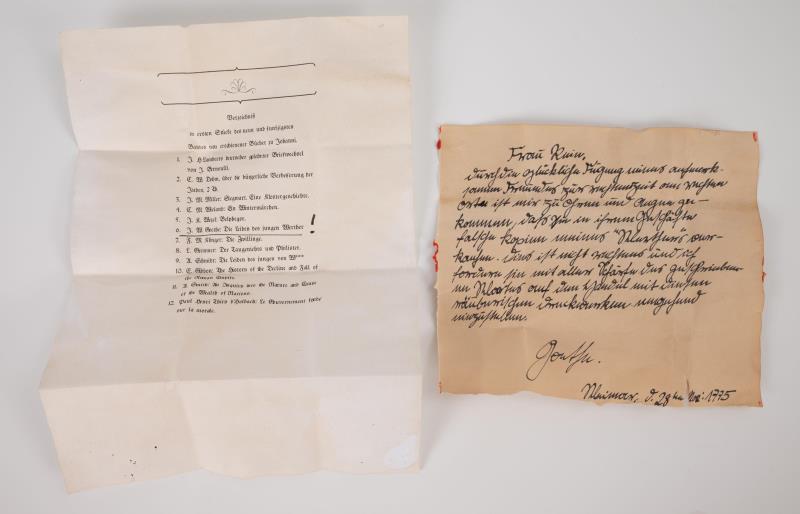 Verzeichniß
im ersten Stücke des neun und fünfzigsten
Bandes von erschienener Bücher zu Johanni.
1. J. H. Lamberts deutscher gelehrter Briefwechsel
von J. Bernoulli.
2. C. W. Dohm, über die bürgerliche Verbesserung der
Juden, 2 B.
3. J. M. Miller: Siegwart. Eine Klostergeschichte.
4. C. M. Wieland: Ein Wintermärchen.
5. J. K. Wezel: Belphegor.
6. J. W. Goethe: Die Leiden des jungen Werther !
7. F. M. Klinger: Die Zwillinge.
8. L. Die Taugenichts und Philister.
9. A. Schmidt: Die Leiden des jungen von W***
10. E. Gibbon: The History of the Decline and Fall of
the Roman Empire.
11. A. Smith: An Inquiry into the Nature and Cause
of the Wealth of Nations.
12. Paul Henri Thiry d'Holbach: Le Gouvernement fondé
sur la morale.
Frau Kuin,
durch die glückliche Fügung meines aufmerk-
samen Freundes zur rechten Zeit am rechten
Orte ist mir zu Ohren und Augen ge-
kommen, dass Sie in ihrem Geschäfte
falsche Kopien meines "Werthers" ver-
kaufen. Dies ist nicht rechtens und ich
fordere sie mit aller Schärfe des geschriebe-
nen Wortes auf den Handel mit diesen
räuberischen Druckwerken umgehend
einzustellen.
Goethe.
Weimar, d. 28ten 1775